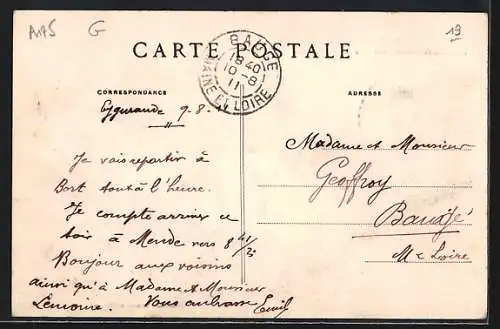 AA5 G
19
CARTE POSTALE
BAUGÉ
18 40
10-8
11
MAINE ET LOIRE
CORRESPONDANCE
ADRESSE
Eygurande 9-8-11
Je vais repartir à
Bort tout à l'heure.
Je compte arriver ce
soir à Mende vers 8 h 1/2
Bonjour aux voisins
ainsi qu'à Madame et Monsieur
Lemoine. Vous embrasse Emile
Madame et Monsieur
Geoffroy
Baugé
M & Loire